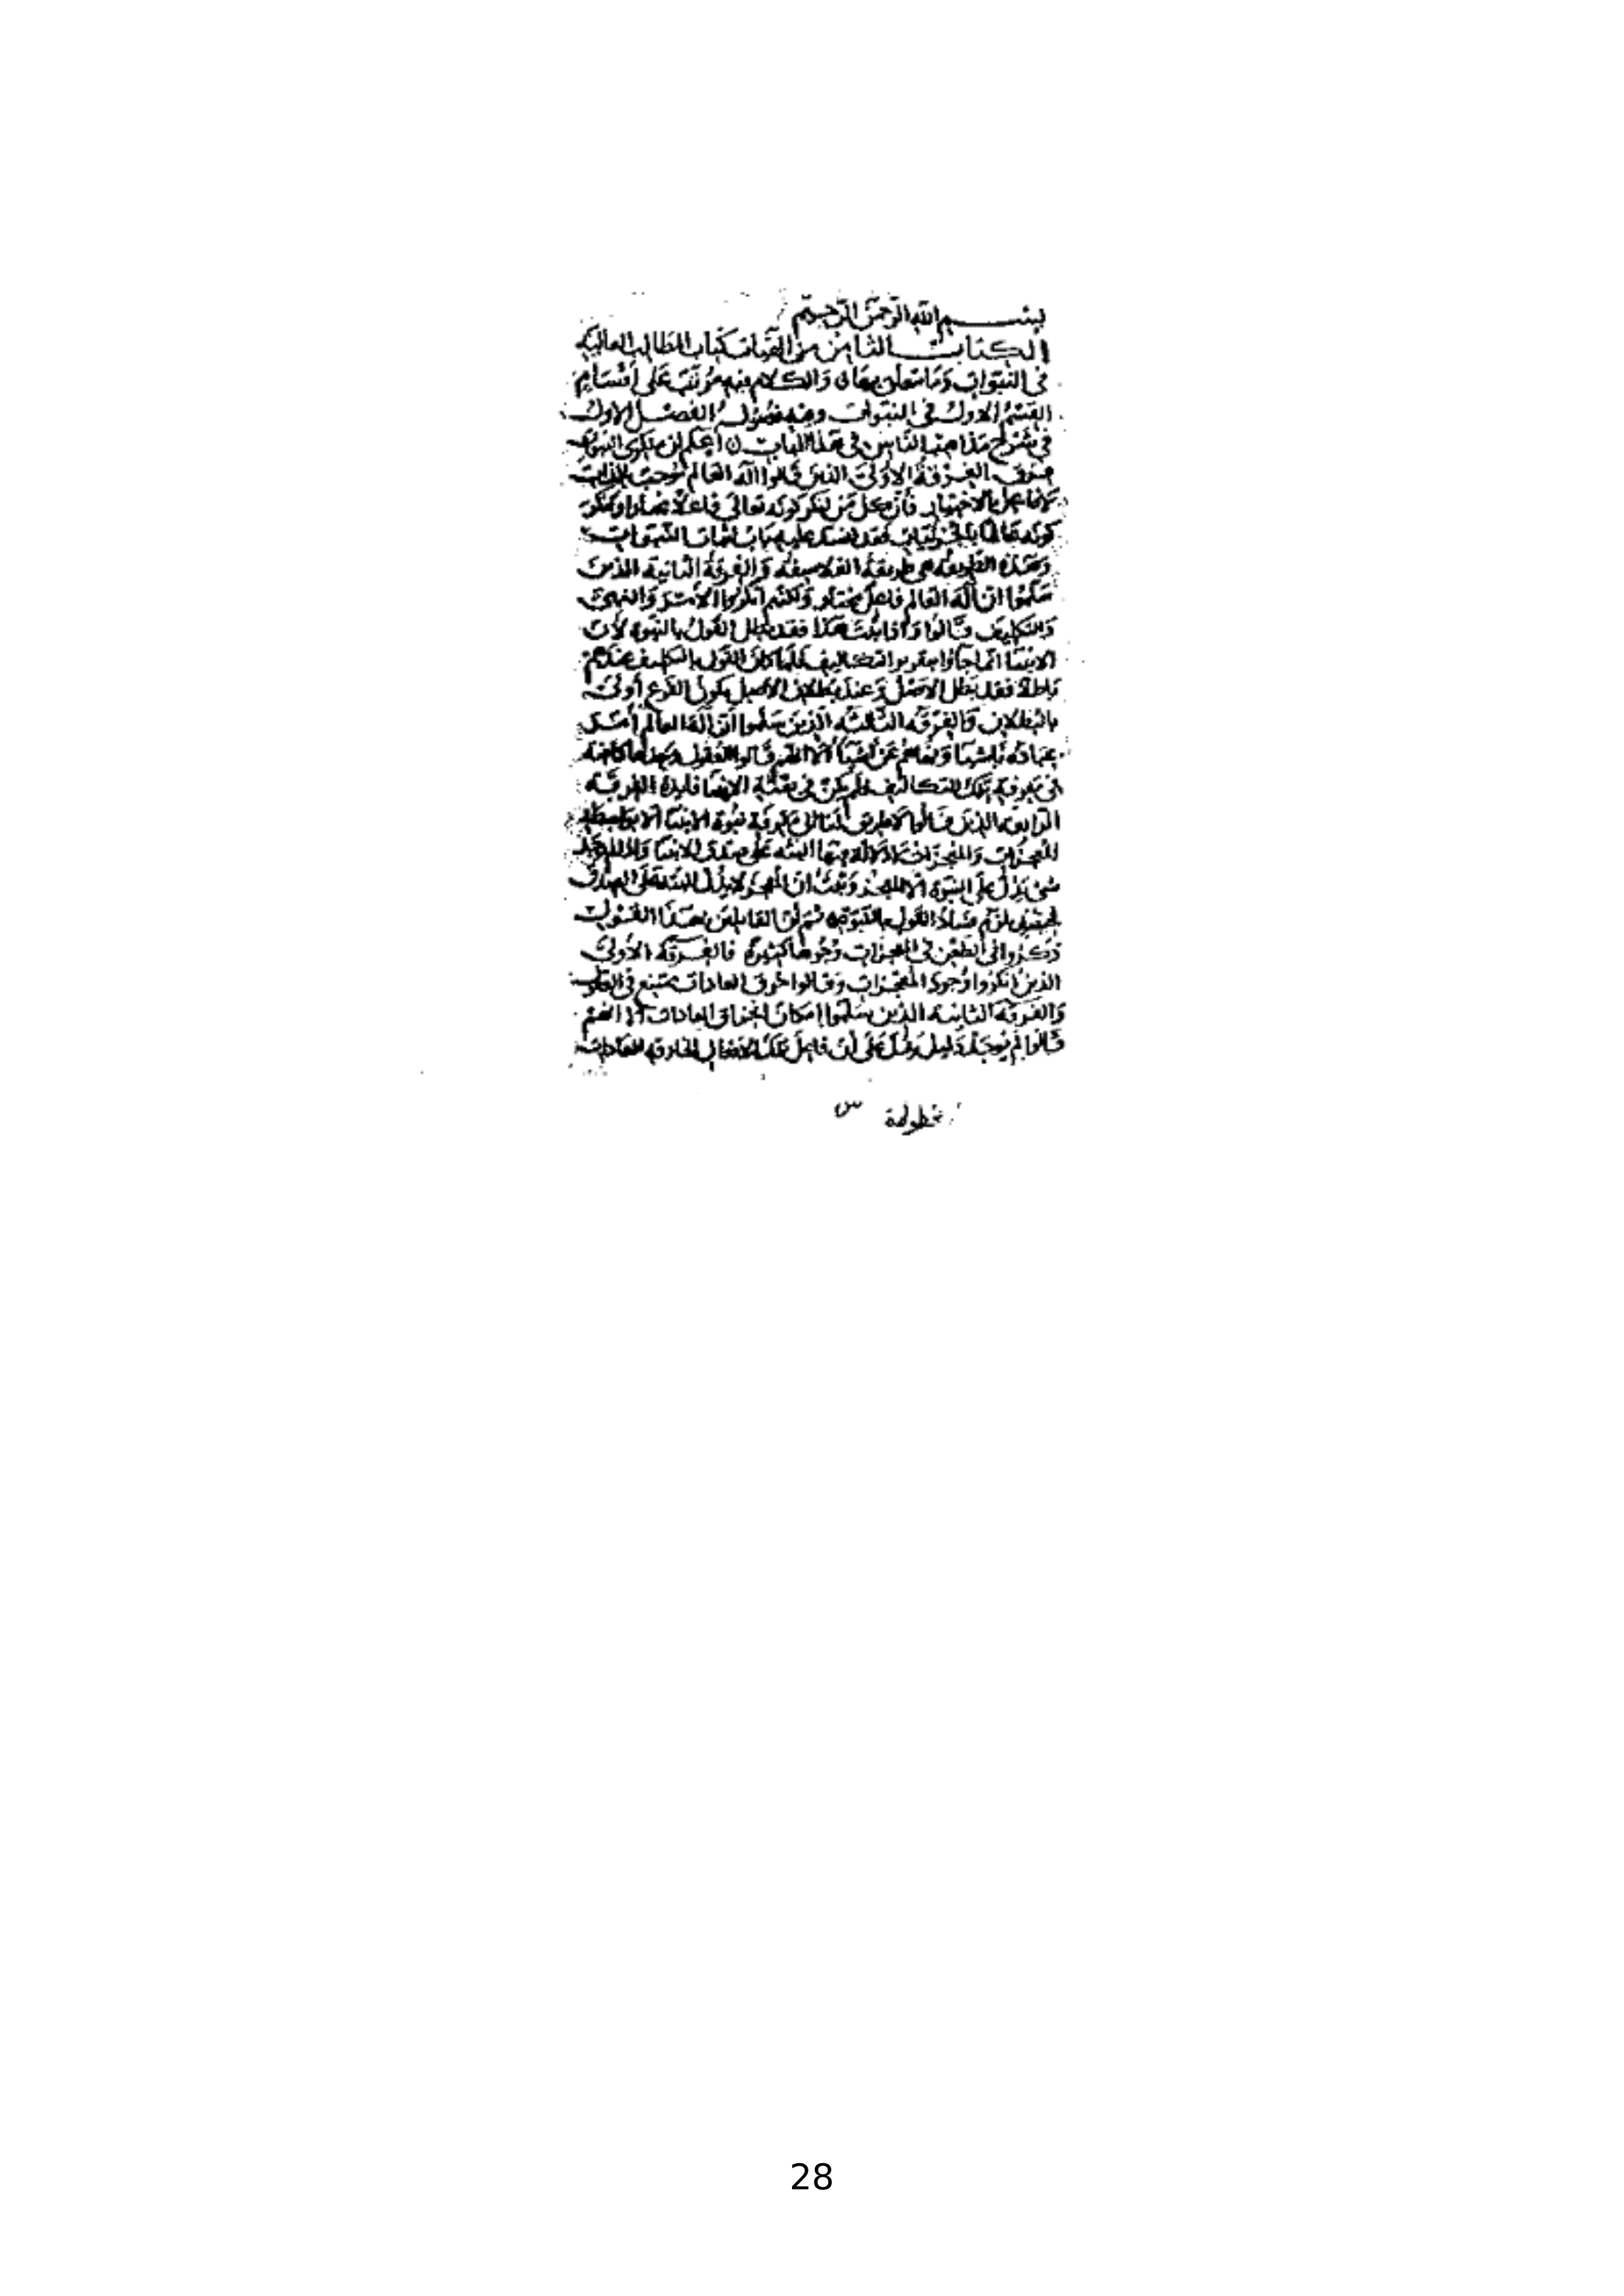 بسم الله الرحمن الرحيم
الكتاب الثامن من الهيات كتاب المطالب العاليه
في النبوات وما يتعلق بها والكلام فيه مرتب على اقسام
القسم الاول في النبوات وفيه فصول الفصل الاول
في شرح مذاهب الناس في هذا الباب اعلم ان منكري النبوات
فرق الفرقة الاولى الذين قالوا اله العالم موجب بالذات
لا فاعل بالاختيار فان كل من ينكر كونه تعالى فاعلا مختارا وينكر
كونه عالما بالجزئيات فقد انسد عليه باب اثبات النبوات
وهذه الطريقه هي طريقة الفلاسفة والفرقة الثانية الذين
سلموا ان اله العالم فاعل مختار ولكنهم انكروا الامر والنهي
والتكليف وقالوا واذا ثبت هذا فقد بطل القول بالنبوة لان
الانبيا انما جاؤا بتقرير التكاليف فلما كان القول بالتكليف عندهم
باطلا فقد بطل الاصل وعند بطلان الاصل يكون الفرع أولى
بالبطلان والفرقه الثالثه الذين سلموا ان اله العالم أمر
عباده باشيا ونهاهم عن اشيا الا انهم قالوا العقول وحدها كافية
في معرفة تلك التكاليف فلم يكن في بعثة الانبيا فايدة الفرقة
الرابعه الذين قالوا لا طريق لنا الى معرفة نبوة الانبيا الا بواسطة
المعجزات والمعجزات لا دلالة فيها البته على صدق الانبيا
شي يدل على النبوة الا المعجز وثبت ان المعجز لا يدل البته على الصدق
فحينئذ يلزم فساد القول بالنبوة ثم ان القايلين بهذا القول
ذكروا في الطعن في المعجزات وجوها كثيرة فالفرقه الأولى
الذين انكروا وجود المعجزات وقالوا خرق العادات ممتنع في العقول
والفرقه الثانيه الذين سلموا امكان انخراق العادات الا انهم
قالوا لم يوجد دليل يدل على ان فاعل تلك الافعال الخارقه للعادات
مخطوطة س
28